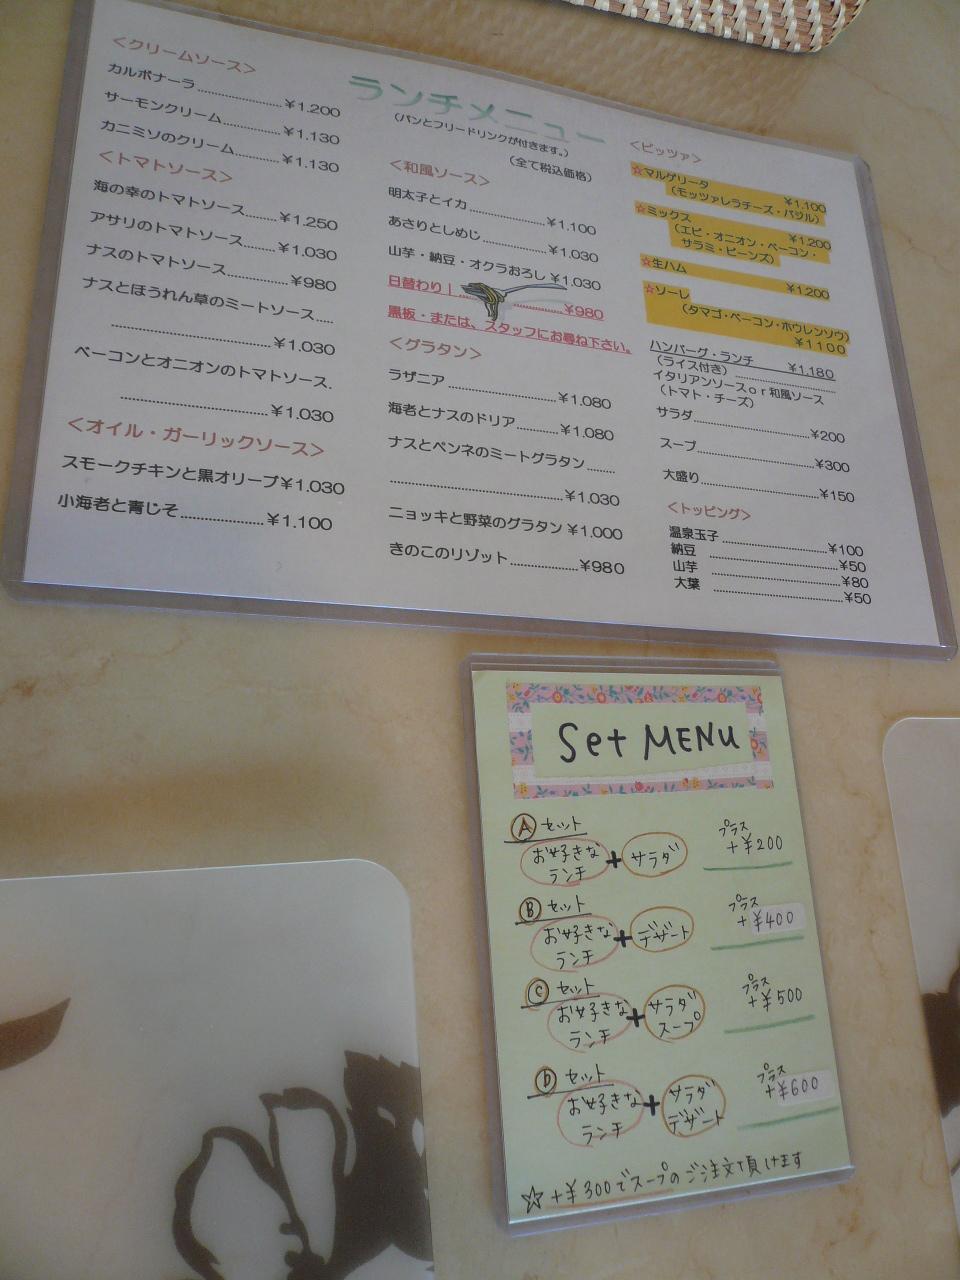 ランチメニュー
(パンとフリードリンクが付きます。)
(全て税込価格)
<クリームソース>
カルボナーラ ¥1.200
サーモンクリーム ¥1.130
カニミソのクリーム ¥1.130
<トマトソース>
海の幸のトマトソース ¥1.250
アサリのトマトソース ¥1.030
ナスのトマトソース ¥980
ナスとほうれん草のミートソース
¥1.030
ベーコンとオニオンのトマトソース
¥1.030
<オイル・ガーリックソース>
スモークチキンと黒オリーブ¥1.030
小海老と青じそ ¥1.100
<和風ソース>
明太子とイカ ¥1.100
あさりとしめじ ¥1.030
山芋・納豆・オクラおろし ¥1.030
日替わり ¥980
黒板・または、スタッフにお尋ね下さい。
<グラタン>
ラザニア ¥1.080
海老とナスのドリア ¥1.080
ナスとペンネのミートグラタン
¥1.030
ニョッキと野菜のグラタン ¥1.000
きのこのリゾット ¥980
<ピッツァ>
☆マルゲリータ ¥1.100
(モッツァレラチーズ・バジル)
☆ミックス ¥1.200
(エビ・オニオン・ベーコン・
サラミ・ビーンズ)
☆生ハム ¥1.200
☆ソーレ
(タマゴ・ベーコン・ホウレンソウ)
¥1100
ハンバーグ・ランチ ¥1.180
(ライス付き)
イタリアンソースor和風ソース
(トマト・チーズ)
サラダ ¥200
スープ ¥300
大盛り ¥150
<トッピング>
温泉玉子 ¥100
納豆 ¥50
山芋 ¥80
大葉 ¥50
Set MENU
Ⓐ セット
お好きなランチ + サラダ プラス +¥200
Ⓑ セット
お好きなランチ + デザート プラス +¥400
Ⓒ セット
お好きなランチ + サラダ スープ プラス +¥500
Ⓓ セット
お好きなランチ + サラダ デザート プラス +¥600
☆ +¥300でスープのご注文頂けます